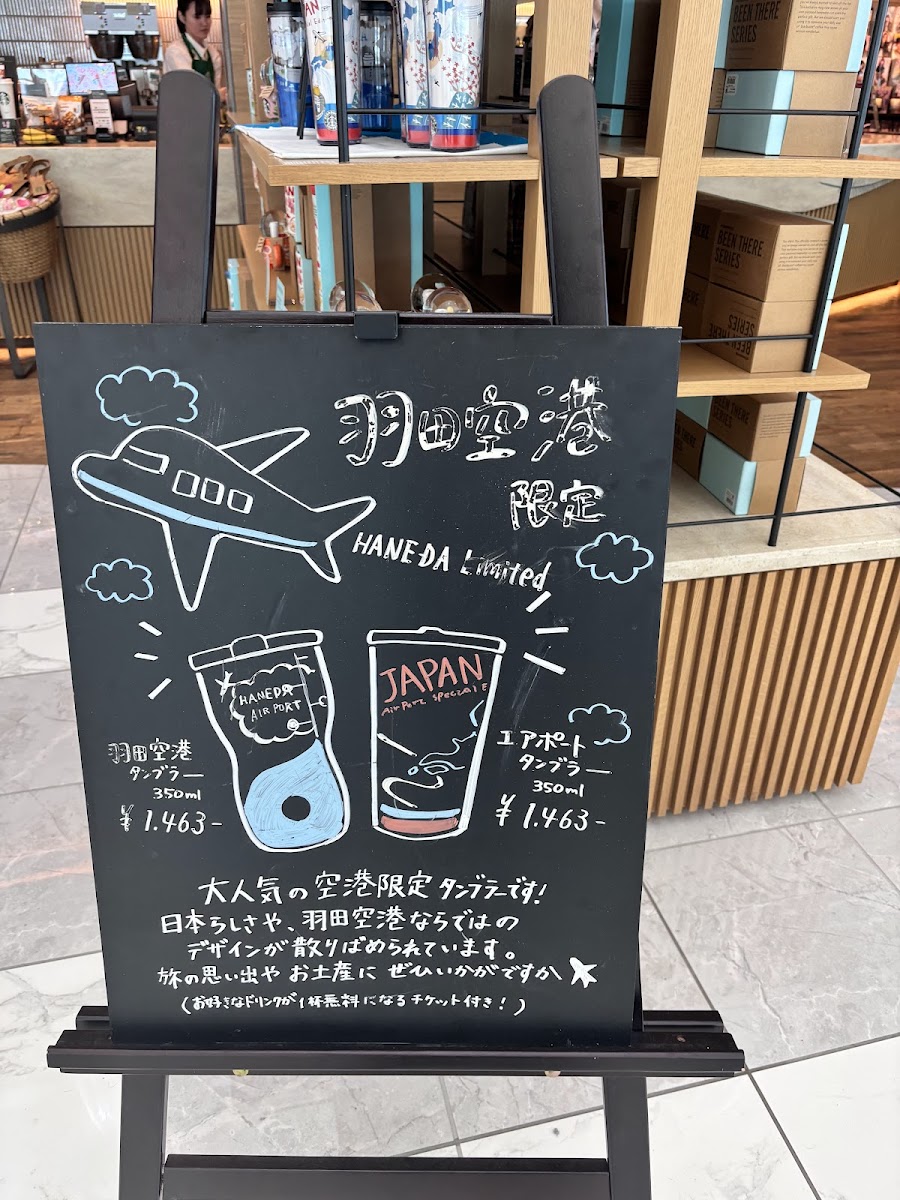 BEEN THERE
SERIES
BEEN THERE
SERIES
BEEN THERE
SERIES
羽田空港
限定
HANEDA Limited
HANEDA
AIRPORT
JAPAN
AirPort SpecialE
羽田空港
タンブラー
350ml
¥1.463-
エアポート
タンブラー
350ml
¥1.463-
大人気の空港限定タンブラーです!
日本らしさや、羽田空港ならではの
デザインが散りばめられています。
旅の思い出や お土産に ぜひいかがですか
(お好きなドリンクが1杯無料になるチケット付き!)